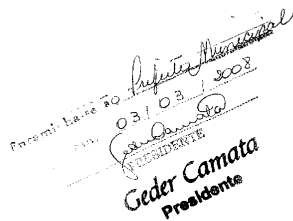 Encaminha-se ao Prefeito Municipal
Em, 03/03/2008
PRESIDENTE
Geder Camata
Presidente